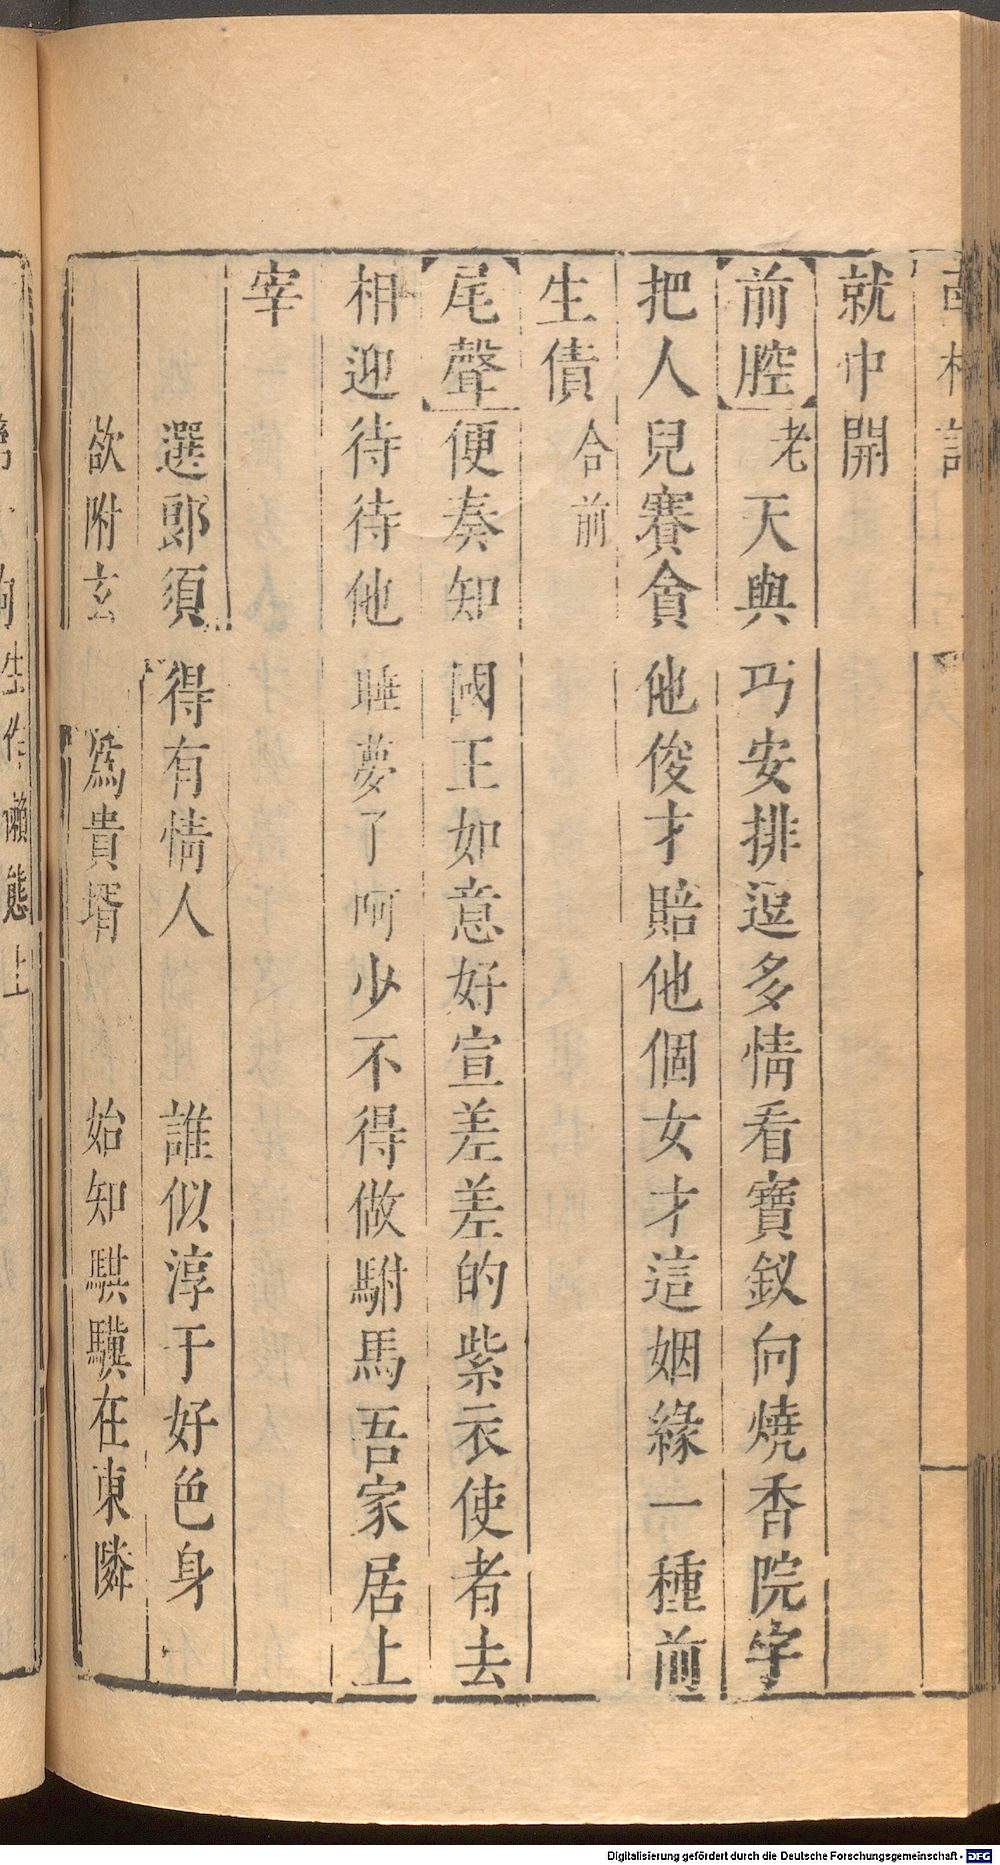 就中開
前腔 老天與巧安排逗多情看寶釵向燒香院字
把人兒賽貪他俊才賠他個女才這姻緣一種前
生債 合前
尾聲 便奏知國王如意好宣差差的紫衣使者去
相迎待待他睡夢了呵少不得做駙馬吾家居上
宰
選郎須得有情人 誰似淳于好色身
欲附玄 為貴壻 始知騏驥在東隣
生作懶態上
Digitalisierung gefördert durch die Deutsche Forschungsgemeinschaft - DFG